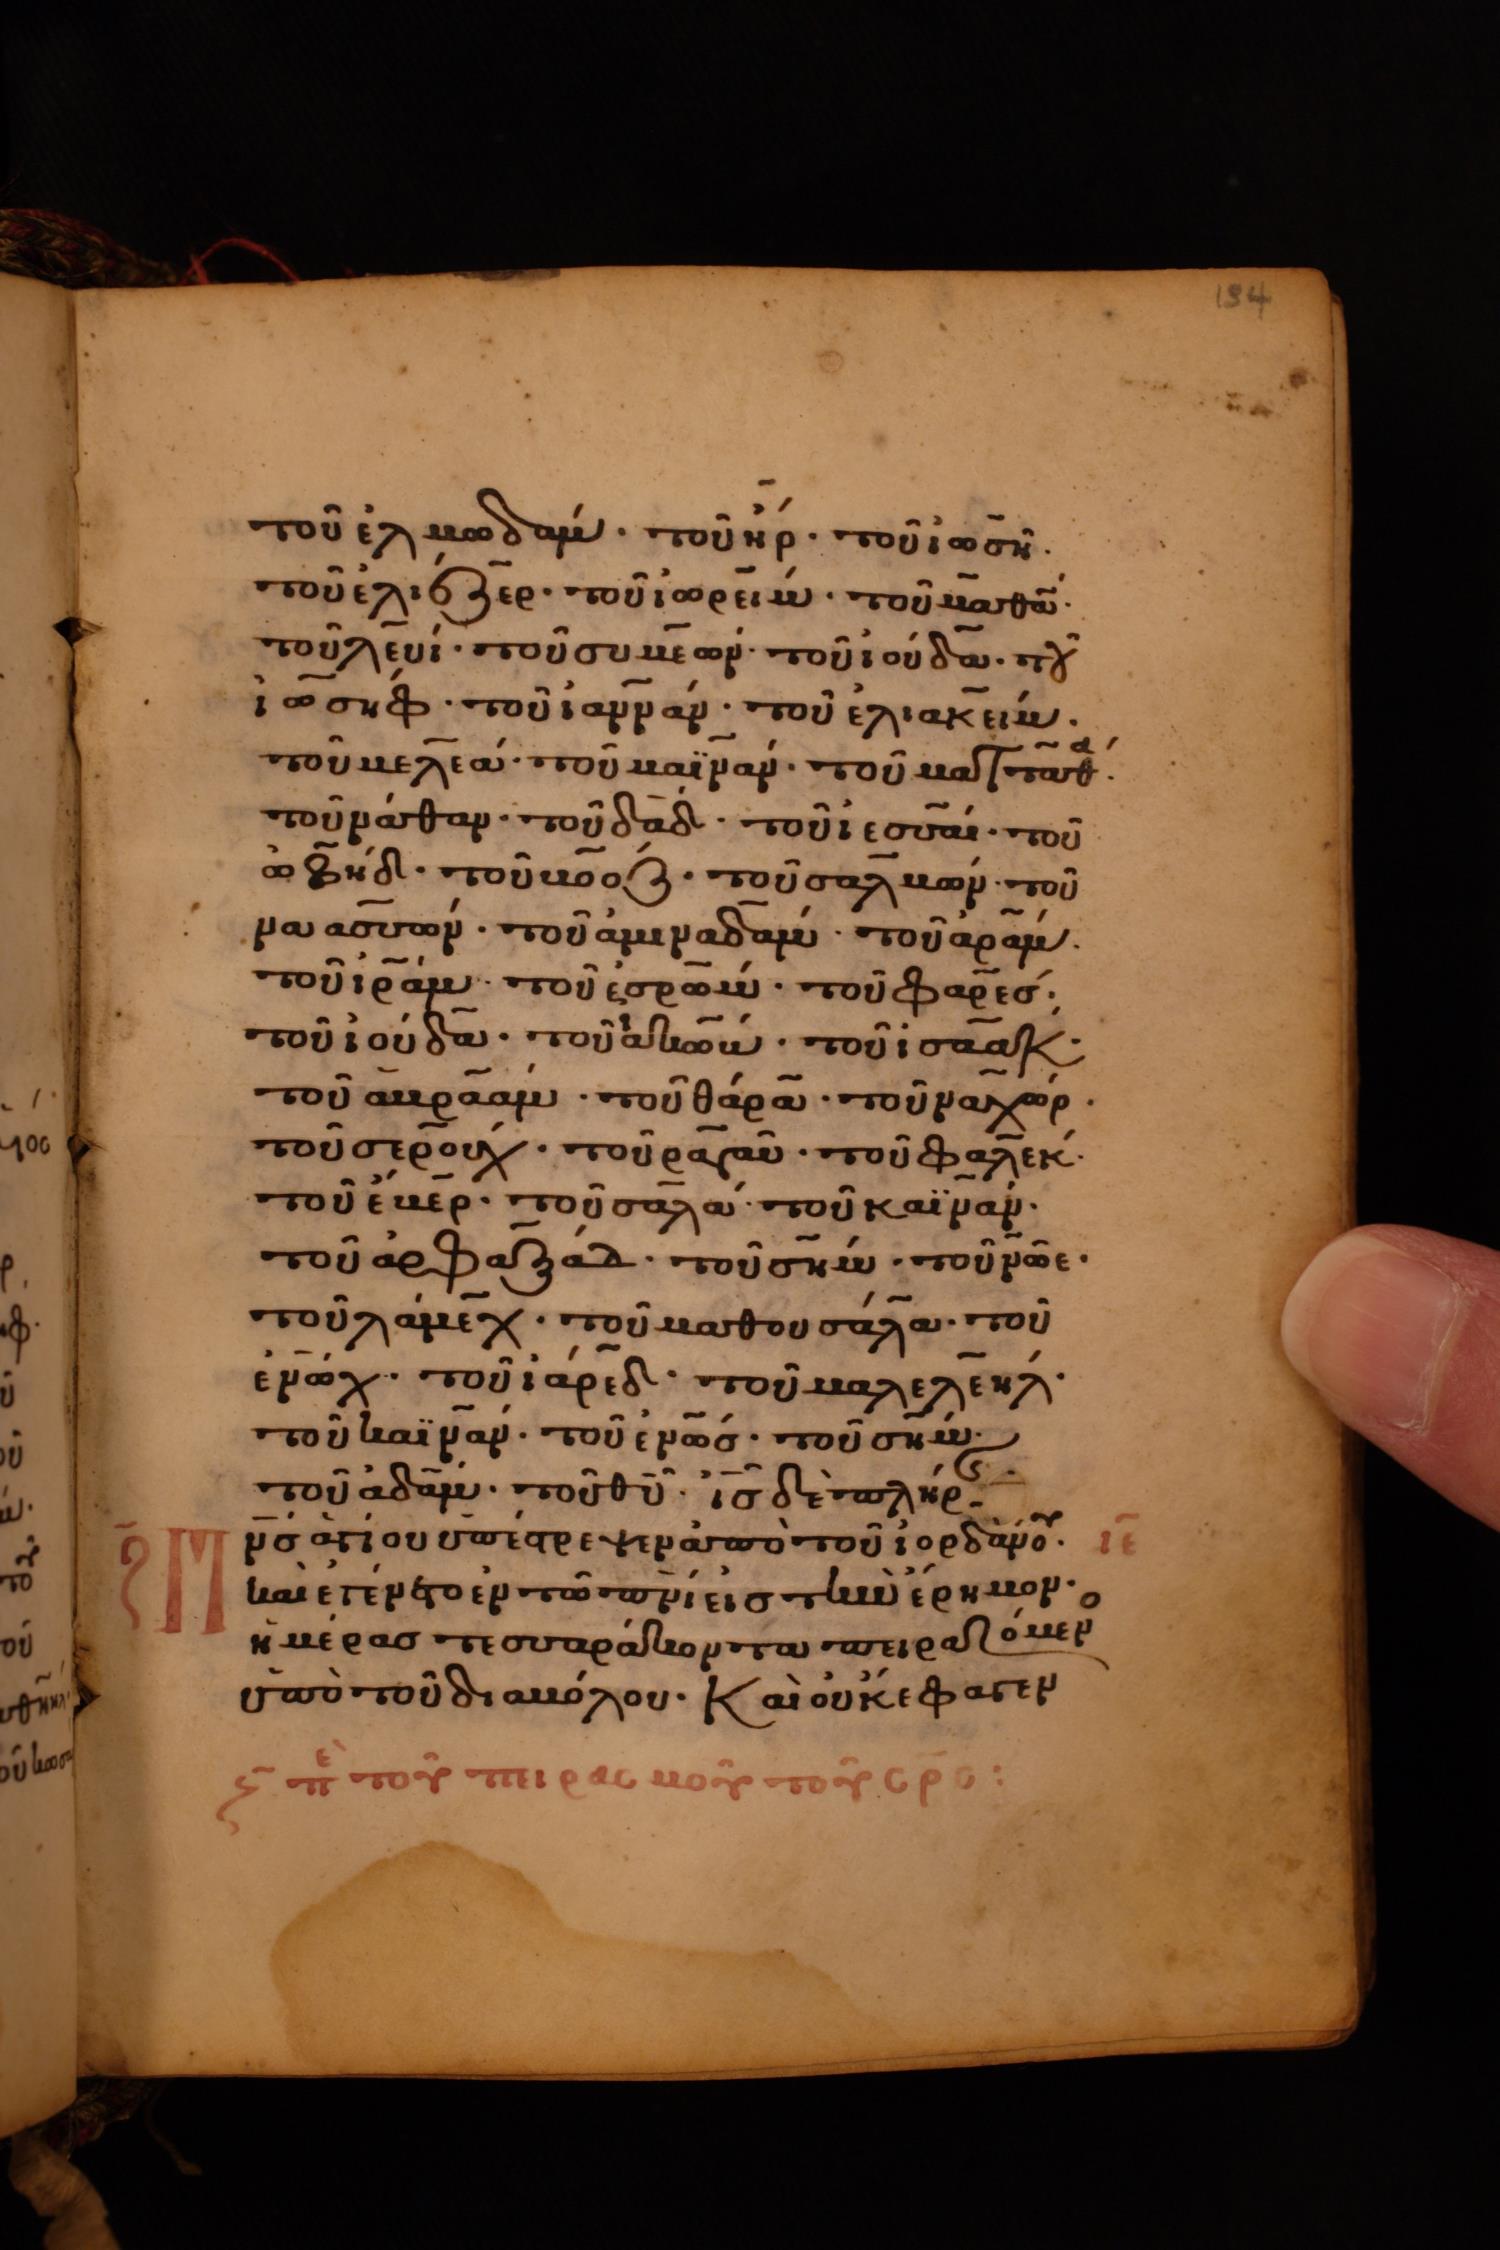 194
τοῦ ἐλμωδάμ · τοῦ ἤρ · τοῦ ἰωσῆ ·
τοῦ ἐλιέζερ · τοῦ ἰωρείμ · τοῦ ματθά ·
τοῦ λευί · τοῦ συμεών · τοῦ ἰούδα · τοῦ
ἰωσήφ · τοῦ ἰαννάν · τοῦ ἐλιακείμ ·
τοῦ μελεά · τοῦ μαϊνάν · τοῦ ματταθά ·
τοῦ νάθαν · τοῦ δαδ · τοῦ ἰεσσαί · τοῦ
ὠβήδ · τοῦ βοόζ · τοῦ σαλμών · τοῦ
ναασσών · τοῦ ἀμιναδάμ · τοῦ ἀράμ ·
τοῦ ἰράμ · τοῦ ἐσρώμ · τοῦ φαρές ·
τοῦ ἰούδα · τοῦ ἰακώβ · τοῦ ἰσαάκ ·
τοῦ ἀβραάμ · τοῦ θάρα · τοῦ ναχώρ ·
τοῦ σερούχ · τοῦ ραγαῦ · τοῦ φαλέκ ·
τοῦ ἔβερ · τοῦ σαλά · τοῦ καϊνάν ·
τοῦ ἀρφαξάδ · τοῦ σήμ · τοῦ νῶε ·
τοῦ λάμεχ · τοῦ μαθουσάλα · τοῦ
ἐνώχ · τοῦ ἰάρεδ · τοῦ μαλελεήλ ·
τοῦ καϊνάν · τοῦ ἐνώς · τοῦ σήμ ·
τοῦ ἀδάμ · τοῦ θῦ · ἰς δὲ πλήρης
πνς ἁγίου ὑπέστρεψεν ἀπὸ τοῦ ἰορδάνου · ιε
καὶ ἐγένετο ἐν τῶ πνι εἰς τὴν ἔρημον ·
ἡμέρας τεσσαράκοντα πειραζόμενο
ὑπὸ τοῦ διαβόλου · Καὶ οὐκ ἔφαγεν
ζ πε τοῦ πειρασμοῦ τοῦ σρς :